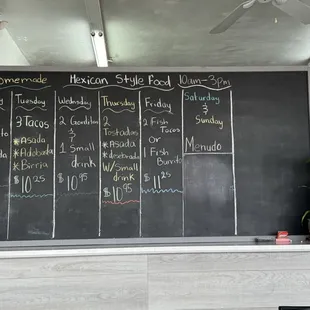 omemade Mexican Style Food 10am-3pm
Tuesday
3 Tacos
*Asada
*Adobada
*Birria
$10.25
Wednesday
2 Gorditas
&
1 Small
drink
$10.95
Thursday
2
Tostadas
*Asada
*deshebrada
w/ Small
drink
$10.95
Friday
2 Fish
Tacos
Or
1 Fish
Burrito
$11.25
Saturday
&
Sunday
Menudo